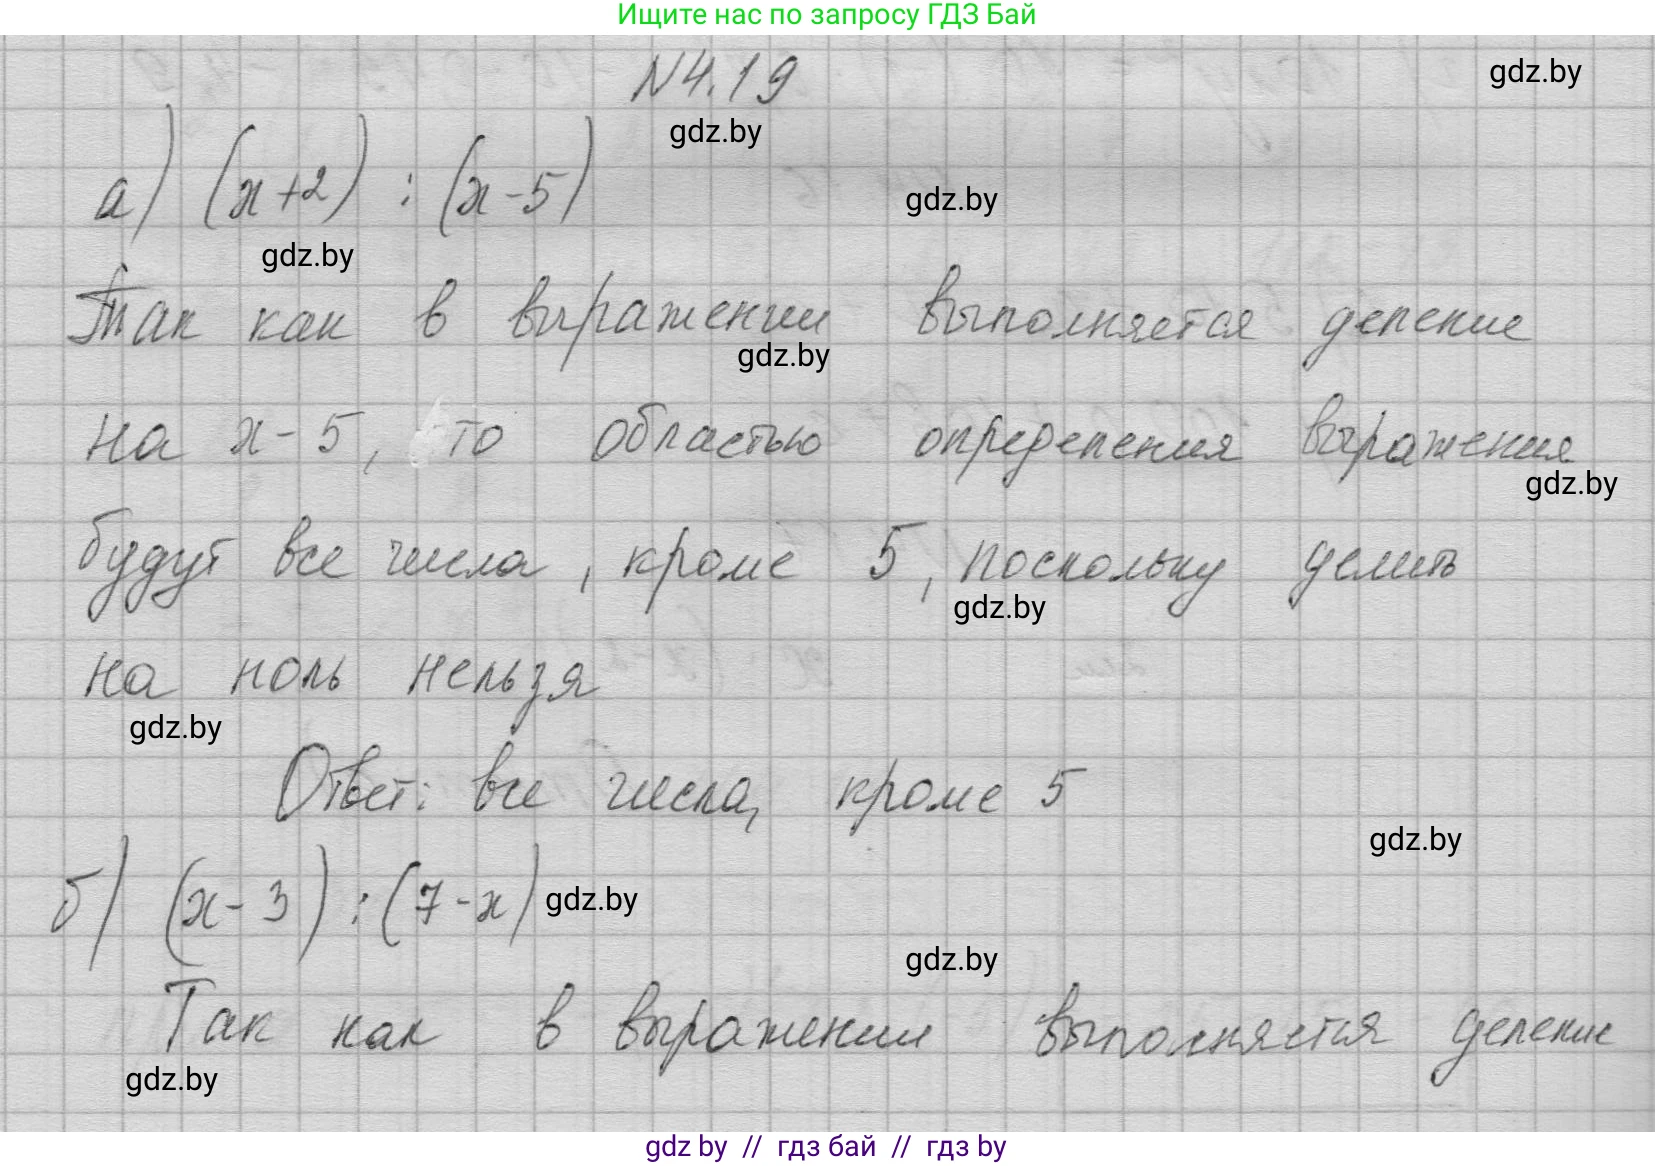 Ищите нас по запросу ГДЗ Бай
N4.19
gdz.by
gdz.by
а) (x+2) : (x-5)
gdz.by
gdz.by
Так как в выражении выполняется деление
gdz.by
на x-5, то областью определения выражения
gdz.by
будут все числа, кроме 5, поскольку делить
gdz.by
на ноль нельзя
gdz.by
Ответ: все числа, кроме 5
gdz.by
б) (x-3) : (7-x)
gdz.by
gdz.by
Так как в выражении выполняется деление
gdz.by
gdz by // гдз бай // гдз by